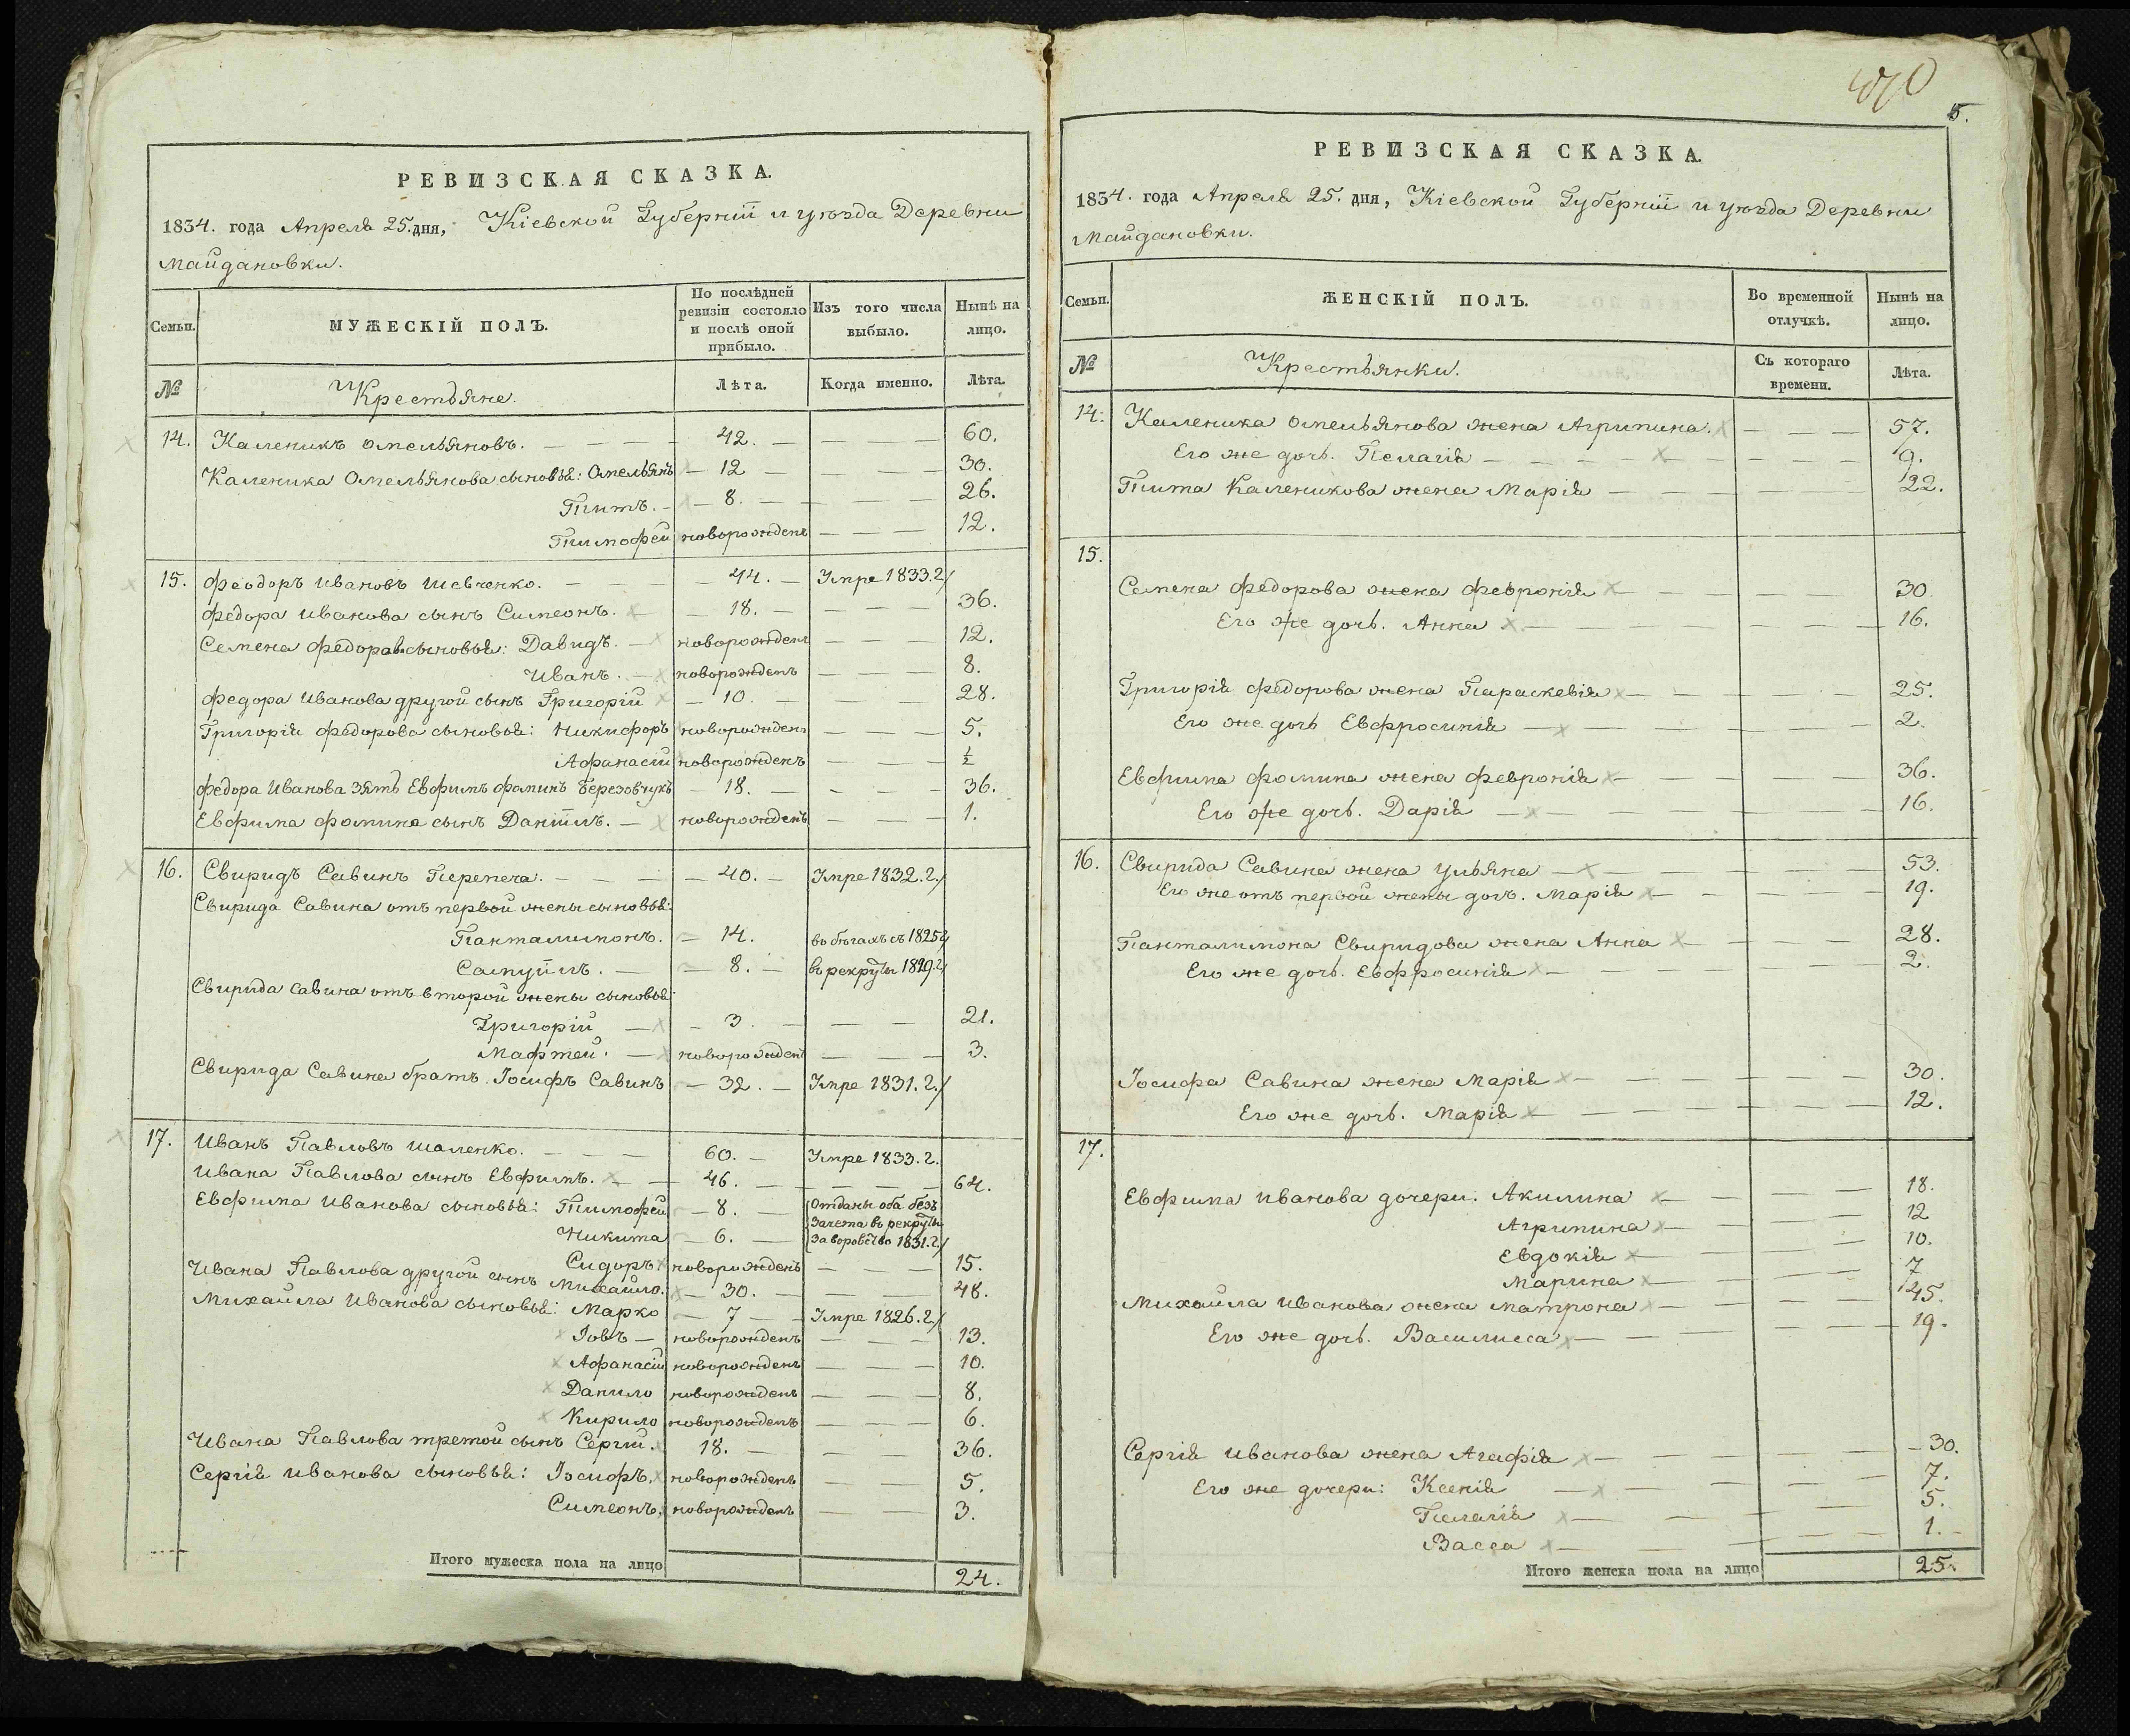 РЕВИЗСКАЯ СКАЗКА.
1834. года Апреля 25. дня, Кіевской Губерніи и уѣзда Деревни
Майдановки.
Семьи.
МУЖЕСКІЙ ПОЛЪ.
По послѣдней ревизіи состояло и послѣ оной прибыло.
Изъ того числа выбыло.
Нынѣ на лицо.
№
Крестьяне.
Лѣта.
Когда именно.
Лѣта.
14. Каленикъ Омельяновъ. 42. 60.
Каленика Омельянова сыновья: Омельянъ 12 30.
Титъ. 8. 26.
Тимофей новорожденъ 12.
15. Феодоръ Ивановъ Шевченко. 44. Умре 1833. г.
Федора Иванова сынъ Симеонъ. 18. 36.
Семена Федорова сыновья: Давидъ. новорожденъ 12.
Иванъ. новорожденъ 8.
Федора Иванова другой сынъ Григорій 10. 28.
Григорія Федорова сыновья: Никифоръ новорожденъ 5.
Афанасій новорожденъ ½
Федора Иванова зять Евфимъ Фоминъ Березовчукъ 18. 36.
Евфима Фомина сынъ Даніилъ. новорожденъ 1.
16. Свиридъ Савинъ Перепеча. 40. Умре 1832. г.
Свирида Савина отъ первой жены сыновья:
Панталимонъ. 14. въ бѣгахъ съ 1825 г
Самуилъ. 8. въ рекруты 1829. г
Свирида Савина отъ второй жены сыновья:
Григорій 3. 21.
Мафтей. новорожденъ 3.
Свирида Савина братъ Іосифъ Савинъ 32. Умре 1831. г.
17. Иванъ Павловъ Шаленко. 60. Умре 1833. г.
Ивана Павлова сынъ Евфимъ. 46. 64.
Евфима Иванова сыновья: Тимофей 8. Отданы оба безъ
Никита 6. зачета въ рекруты за воровство 1831. г.
Сидоръ новорожденъ 15.
Ивана Павлова другой сынъ Михайло. 30. 48.
Михайла Иванова сыновья: Марко 7 Умре 1826. г.
Іовъ новорожденъ 13.
Афанасій новорожденъ 10.
Данило новорожденъ 8.
Кирило новорожденъ 6.
Ивана Павлова третой сынъ Сергій. 18. 36.
Сергія Иванова сыновья: Іосифъ. новорожденъ 5.
Симеонъ. новорожденъ 3.
Итого мужеска пола на лицо 24.
5.
РЕВИЗСКАЯ СКАЗКА.
1834. года Апреля 25. дня, Кіевской Губерніи и уѣзда Деревни
Майдановки.
Семьи.
ЖЕНСКІЙ ПОЛЪ.
Во временной отлучкѣ.
Нынѣ на лицо.
№
Крестьянки.
Съ котораго времени.
Лѣта.
14. Каленика Омельянова жена Агрипина. 57.
Его же дочь. Пелагія 9.
Тита Каленикова жена Марія 22.
15.
Семена Федорова жена Февронія 30.
Его же дочь. Анна 16.
Григорія Федорова жена Параскевія 25.
Его же дочь Евфросинія 2.
Евфима Фомина жена Февронія 36.
Его же дочь. Дарія 16.
16. Свирида Савина жена Ульяна 53.
Его же отъ первой жены дочь. Марія 19.
Панталимона Свиридова жена Анна 28.
Его же дочь. Евфросинія 2.
Іосифа Савина жена Марія 30.
Его же дочь. Марія 12.
17.
Евфима Иванова дочери: Акилина 18.
Агрипина 12
Евдокія 10.
Марина 7
Михайла Иванова жена Матрона 45.
Его же дочь. Василисса 19.
Сергія Иванова жена Агафія 30.
Его же дочери: Ксенія 7.
Пелагія 5.
Васса 1.
Итого женска пола на лицо 25.